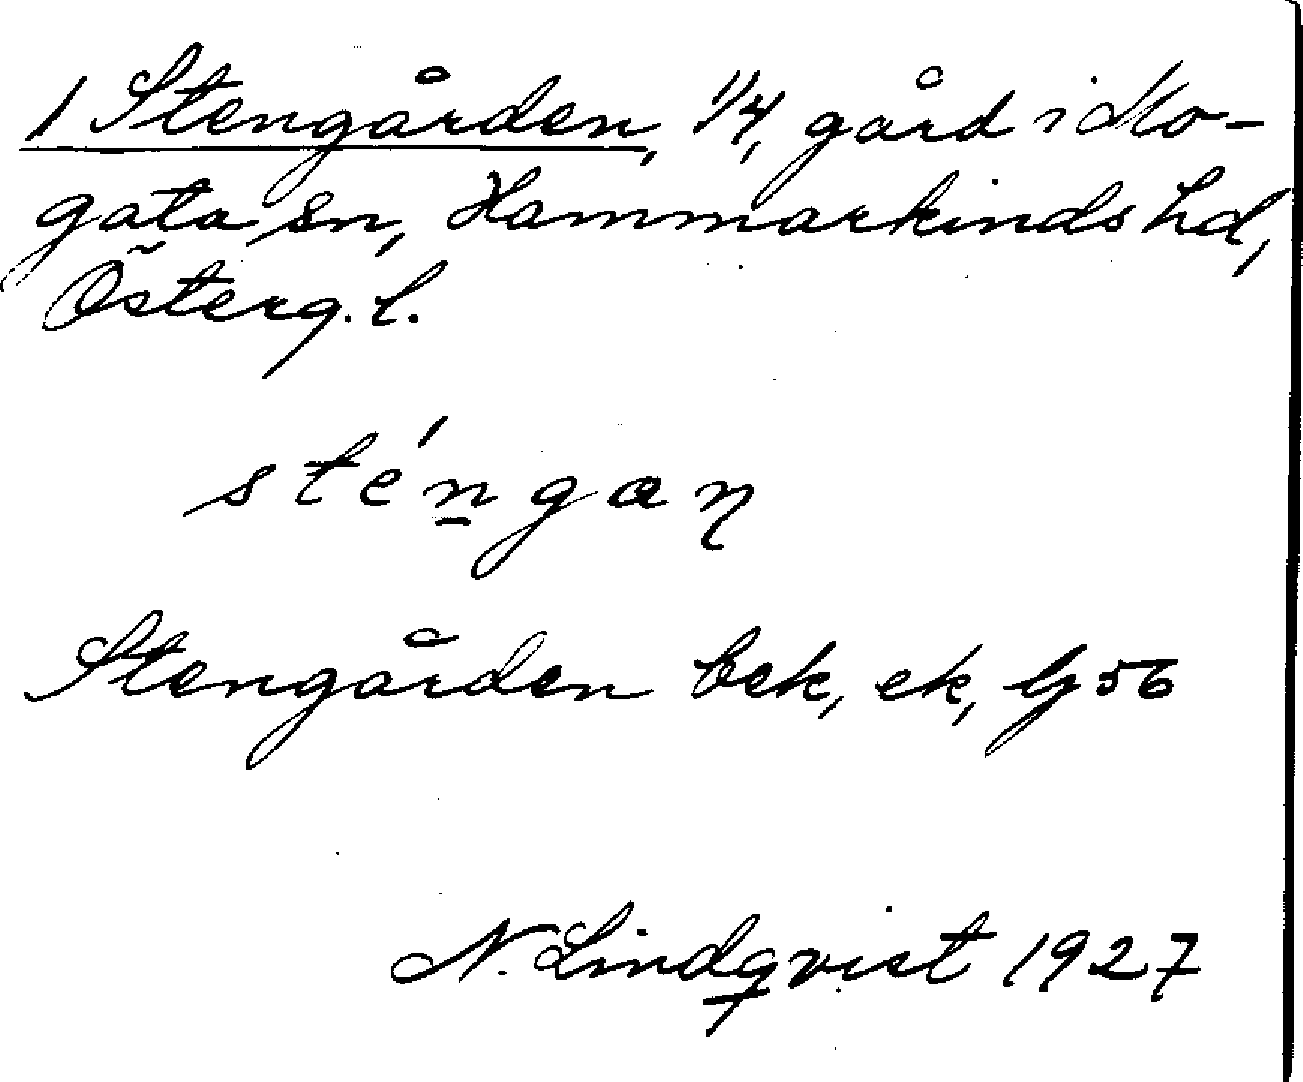 1 Stengården, 1/4, gård i Mo-
gata sn, Hammarkinds hd,
Österg. l.
sténgaɳ
Stengården bek, ek, G 56
N. Lindqvist 1927